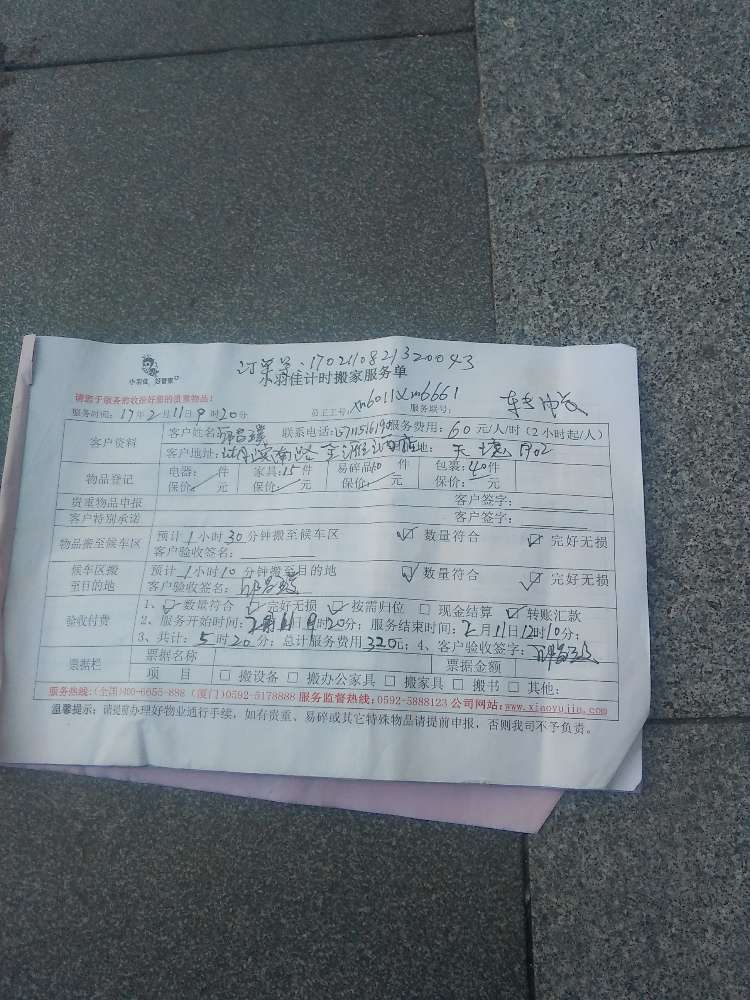 订单号:1702110821320043
小羽佳 好管家
小羽佳计时搬家服务单
请您于服务前收拾好您的贵重物品!
服务时间:17年2月11日9时20分 员工工号:xm6011 xm6661 服务联号:
客户资料 客户姓名: 联系电话: 服务费用:60元/人/时(2小时起/人)
客户地址:湖滨南路 地:天境
物品登记 电器: 件 家具:15件 易碎品10件 包裹:40件
保价: 元 保价: 元 保价: 元 保价: 元
贵重物品申报 客户签字:
客户特别承诺 客户签字:
物品搬至候车区 预计1小时30分钟搬至候车区 ☑数量符合 ☑完好无损
客户验收签名:
候车区搬至目的地 预计1小时10分钟搬至目的地 ☑数量符合 ☑完好无损
客户验收签名:
验收付费 1、☑数量符合 ☑完好无损 ☑按需归位 ☐现金结算 ☑转账汇款
2、服务开始时间:2月11日 时20分;服务结束时间:2月11日12时10分;
3、共计:5时20分;总计服务费用320元;4、客户验收签字:
票据栏 票据名称 票据金额
项 目 ☐搬设备 ☐搬办公家具 ☐搬家具 ☐搬书 ☐其他:
服务热线:(全国)400-6655-888 (厦门)0592-5178888 服务监督热线:0592-5888123 公司网站:www.xiaoyujia.com
温馨提示:请提前办理好物业通行手续,如有贵重、易碎或其它特殊物品请提前申报,否则我司不予负责。